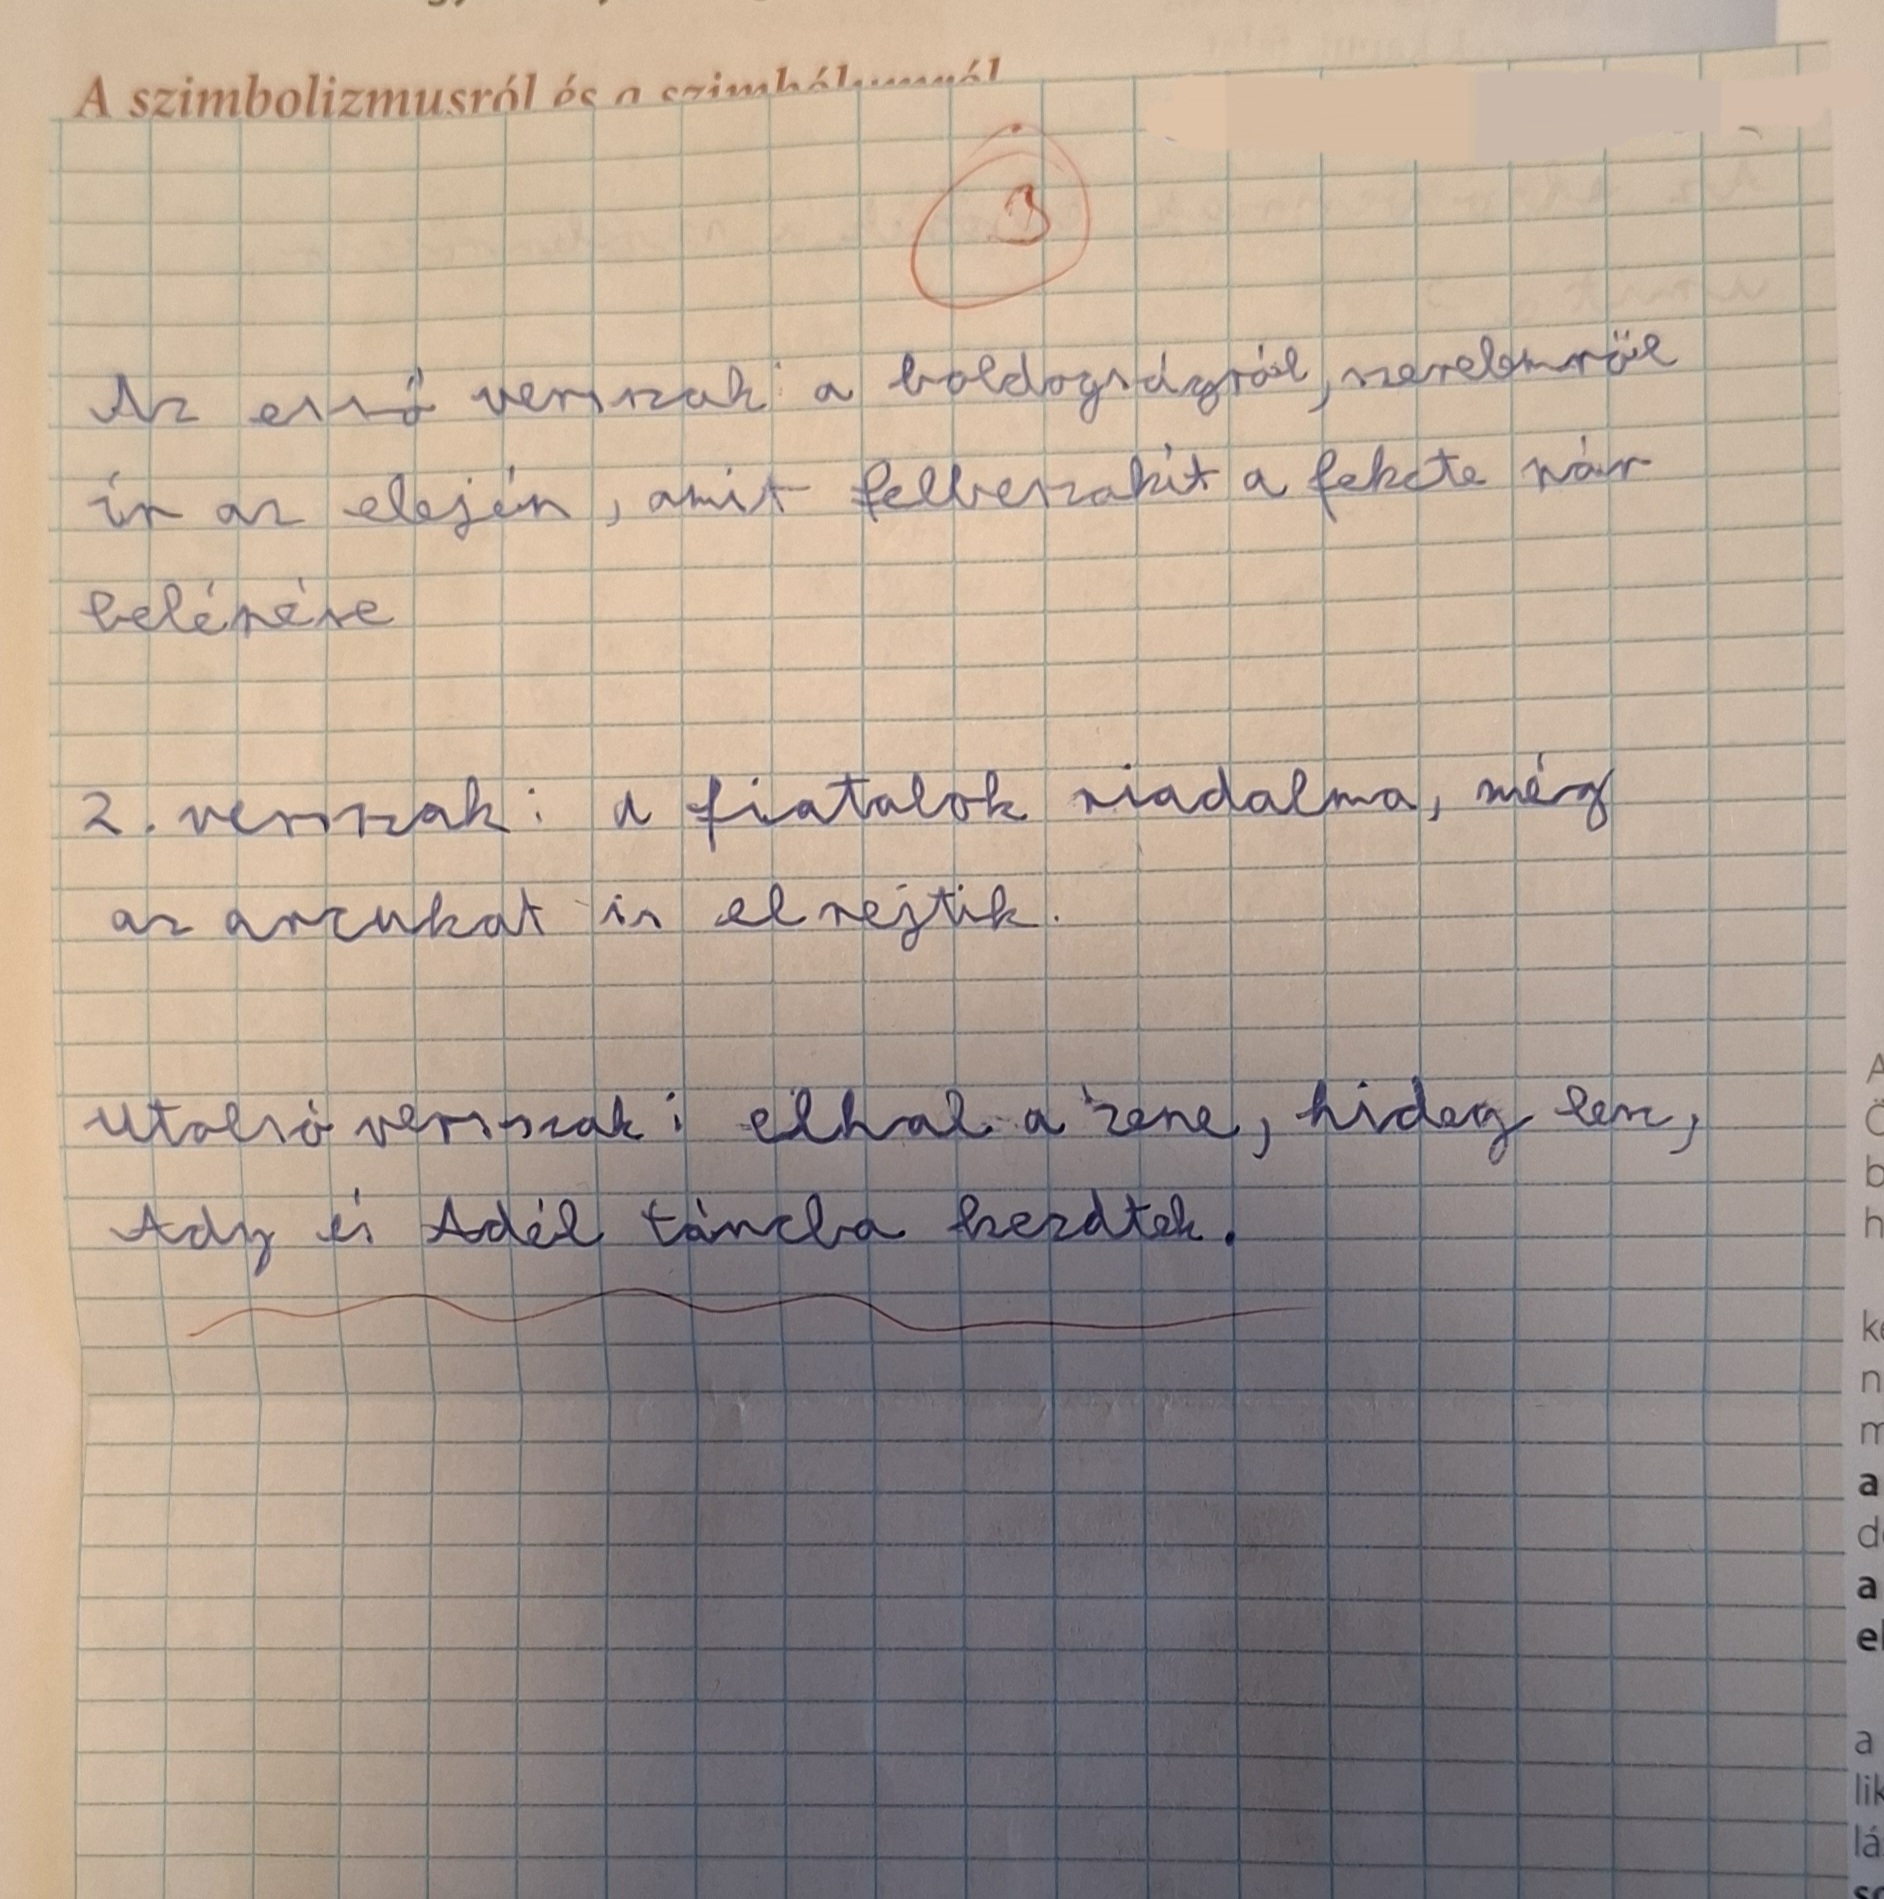 A szimbolizmusról és a szimbólumról
3
Az első versszak a boldogságról, szerelemről
ír az elején, amit felbeszakít a fekete pár
belépése
2. versszak: a fiatalok riadalma, még
az arcukat is elrejtik.
Utolsó versszak: elhal a zene, hideg lesz,
Ady és Adél táncba kezdtek.
A
b
h
ke
n
m
a
d
a
el
a
lik
lá